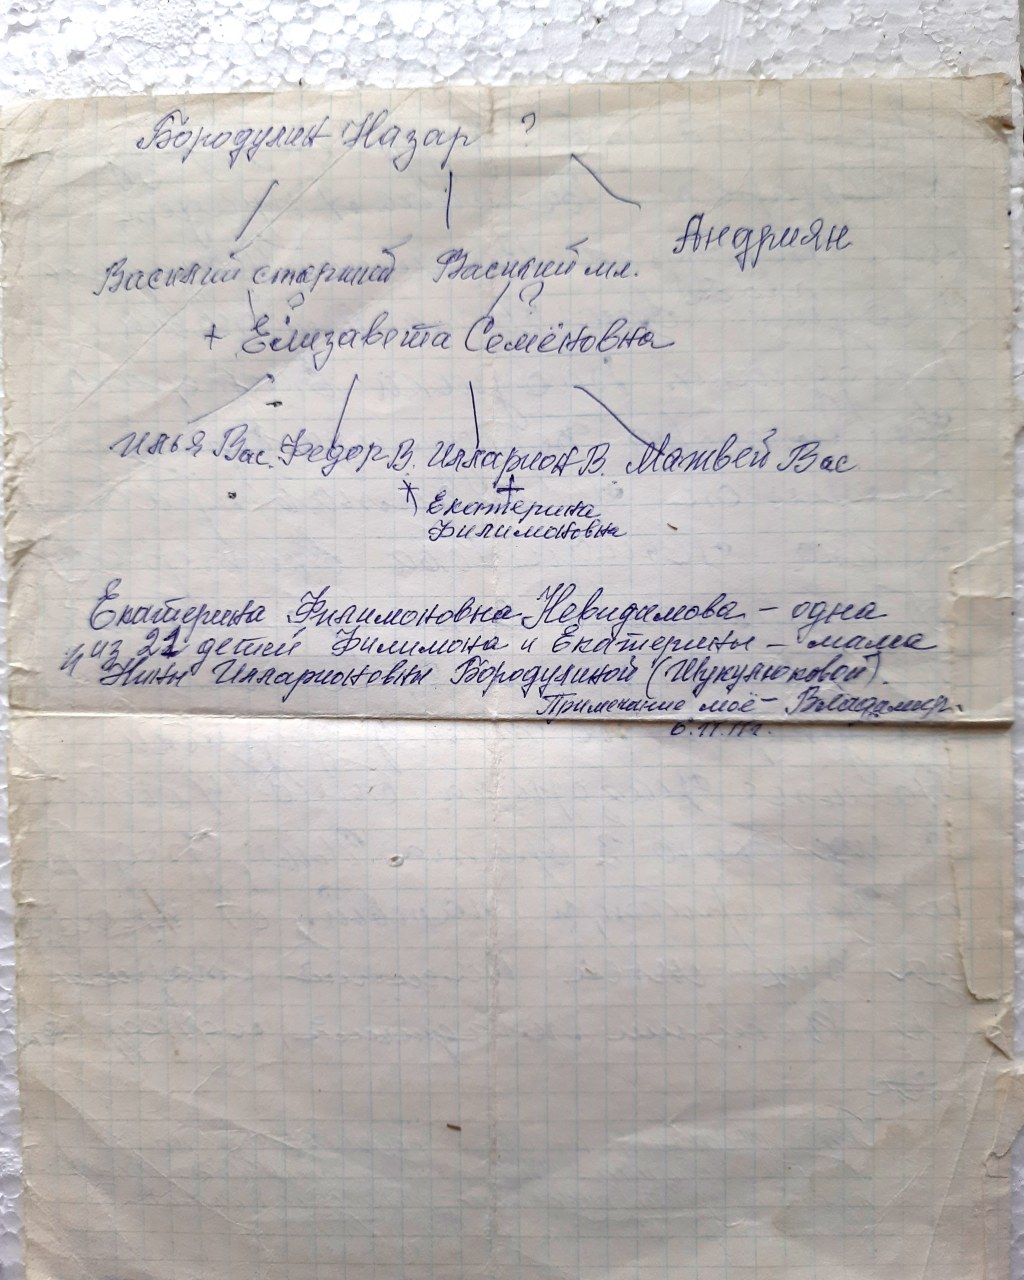 Бородулин Назар ?
Андриян
Василий старший Василий мл.
? ?
+ Елизавета Семёновна
Илья Вас. Федор В. Илларион В. Матвей Вас
+ Екатерина
Филимоновна
Екатерина Филимоновна Невидамова – одна
из 21 детей Филимона и Екатерины – мама
Нины Илларионовны Бородулиной (Шукулюковой).
Примечание моё – Владимир.
6.11.11г.